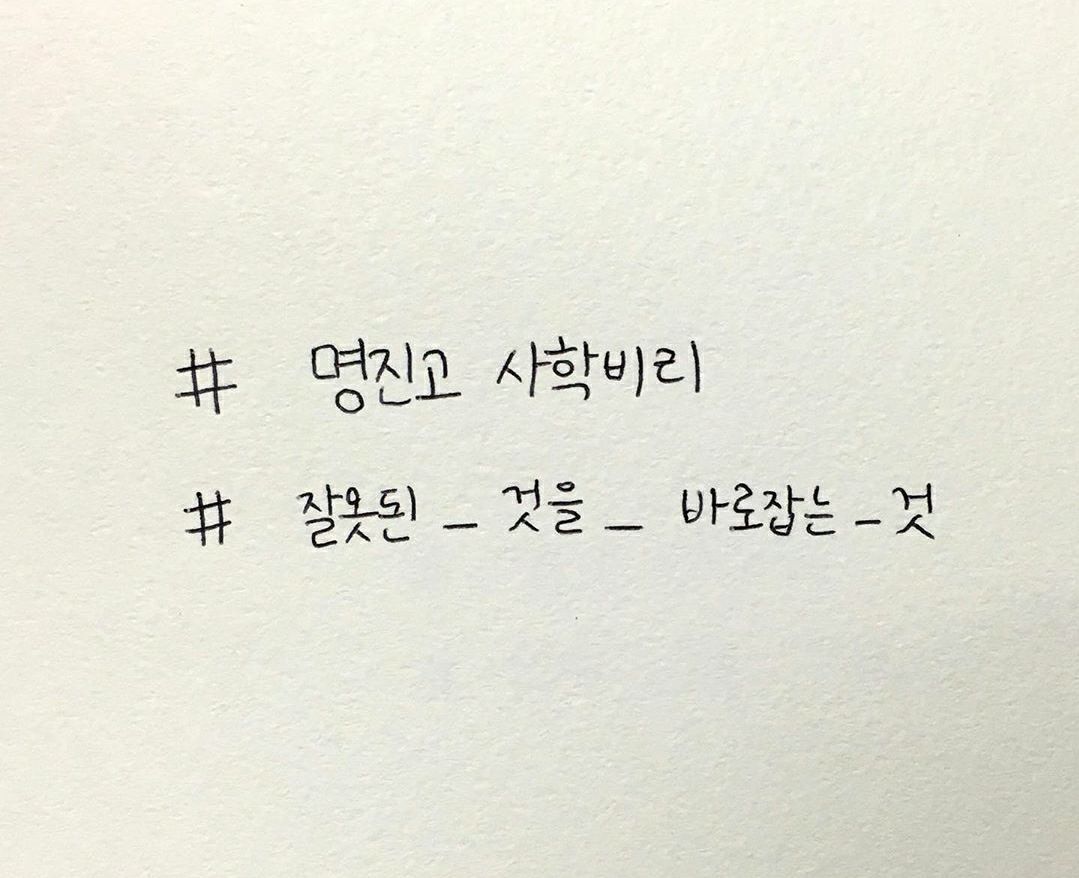 # 명진고 사학비리
# 잘못된 _ 것을 _ 바로잡는 _ 것